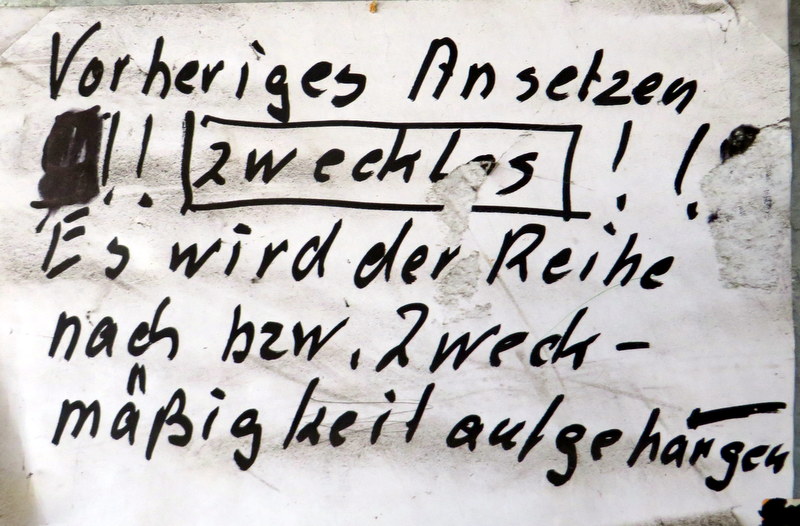 Vorheriges Ansetzen
!! zwecklos !!
Es wird der Reihe
nach bzw. Zweck-
mäßigkeit aufgehangen